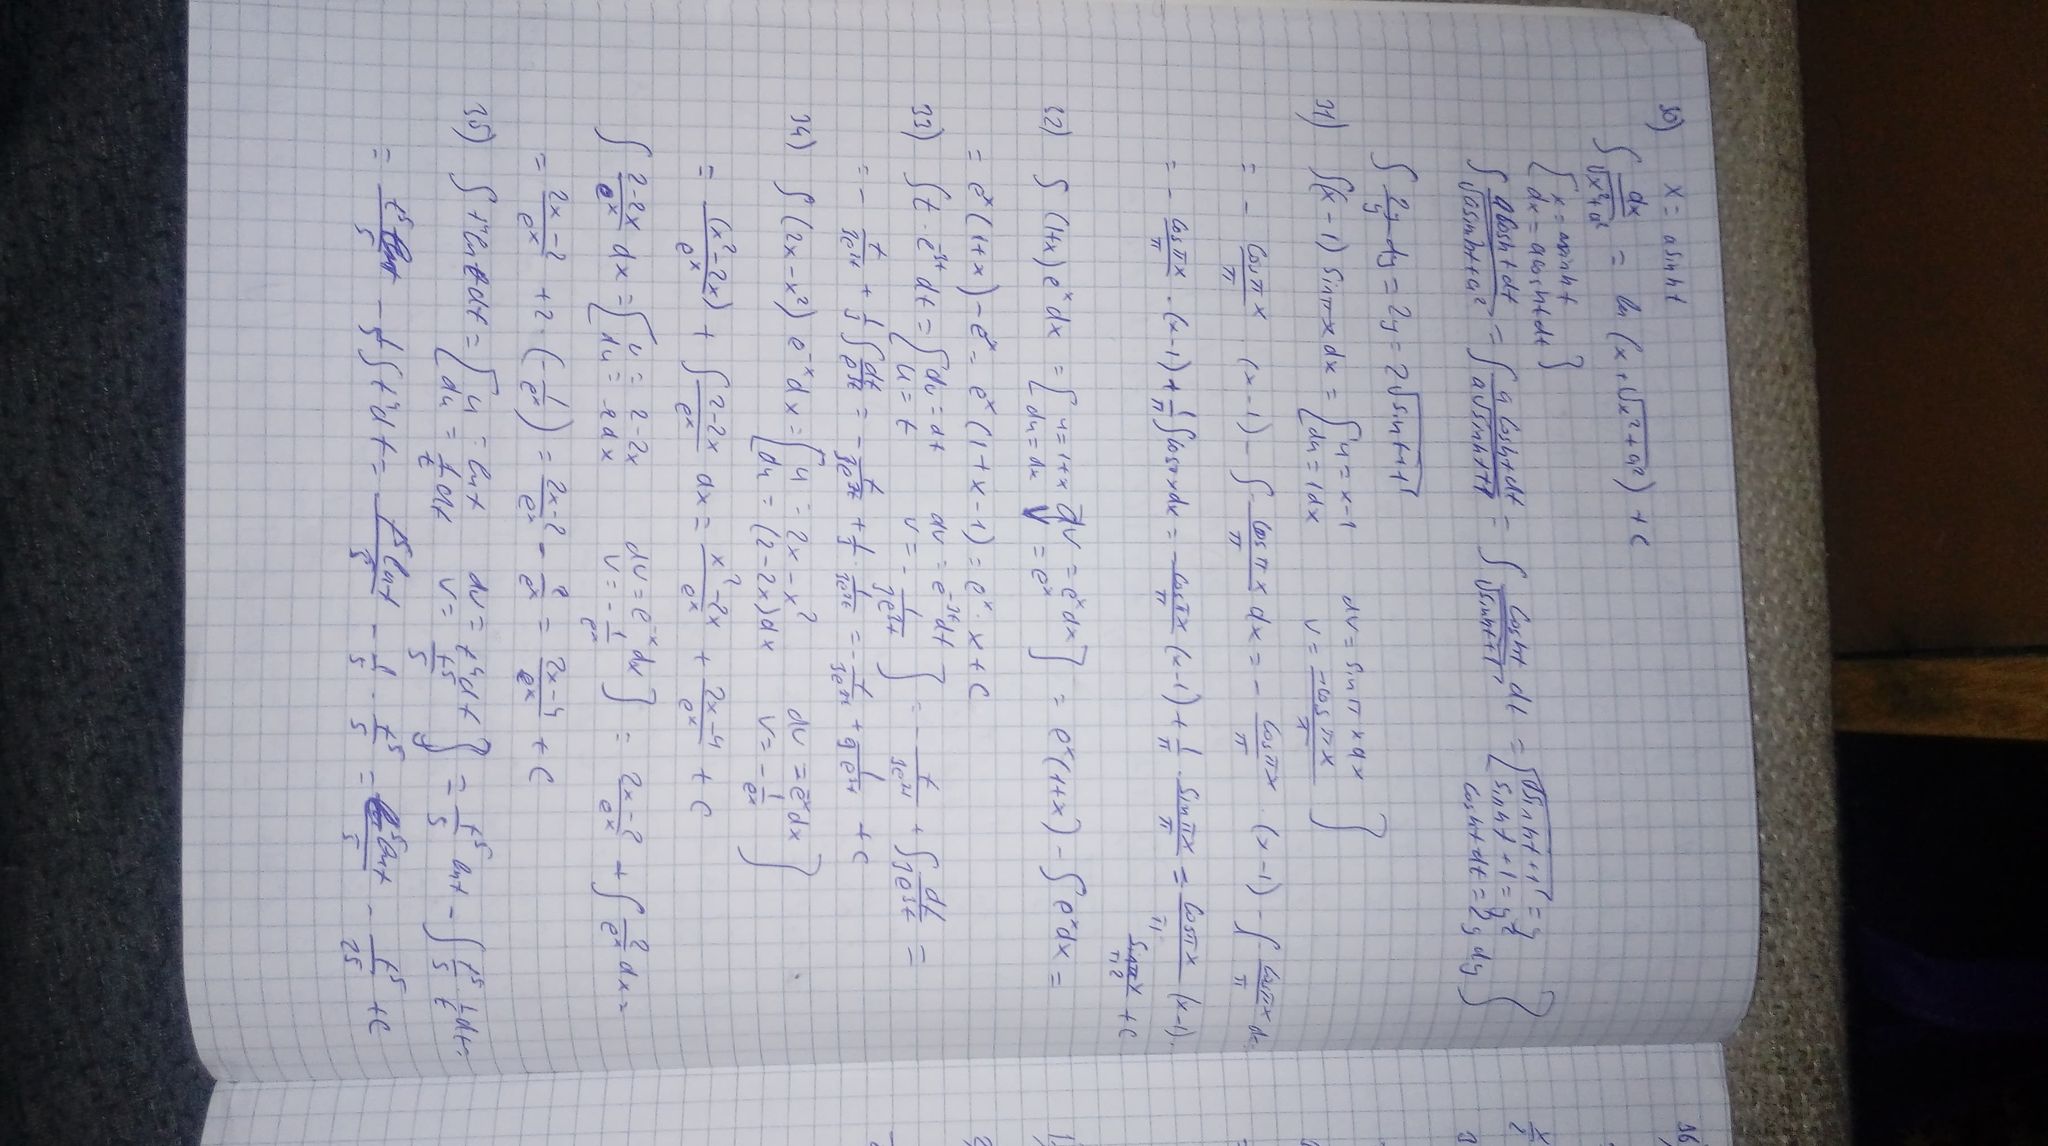 30) x = a sinh t
∫ dx/√(x²+a²) = ln (x+√(x²+a²)) + C
{ x = a sinh t
dx = a cosh t dt }
∫ a cosh t dt/√(a sinh t + a²) = ∫ a cosh t dt/a√(sinh t + 1) = ∫ cosh t/√(sinh t + 1) dt = { √(sinh t + 1) = y
sinh t + 1 = y²
cosh t dt = 2y dy }
∫ 2y/y dy = 2y = 2√(sinh t + 1)
31) ∫(x-1) sin πx dx = { u = x-1 dv = sin πx dx
du = 1dx v = -cos πx/π }
= - cos πx/π (x-1) - ∫ cos πx/π dx = - cos πx/π · (x-1) - ∫ cos πx/π dx
= - cos πx/π · (x-1) + 1/π ∫ cos πx dx = - cos πx/π (x-1) + 1/π · sin πx/π = cos πx/π (x-1)
sin πx/π² + C
32) ∫ (1+x) eˣ dx = { u = 1+x dv = eˣ dx
du = dx v = eˣ } = eˣ(1+x) - ∫ eˣ dx =
= eˣ(1+x) - eˣ = eˣ (1+x-1) = eˣ · x + C
33) ∫ t · e⁻³ᵗ dt = { du = dt dv = e⁻³ᵗ dt
u = t v = - 1/3e³ᵗ } = - t/3e³ᵗ + ∫ dt/3e³ᵗ =
= - t/3e³ᵗ + 1/3 ∫ dt/e³ᵗ = - t/3e³ᵗ + 1/3 · 1/3e³ᵗ = - t/3e³ᵗ + 1/9e³ᵗ + C
34) ∫ (2x-x²) e⁻ˣ dx = { u = 2x-x² dv = e⁻ˣ dx
du = (2-2x)dx v = - 1/eˣ }
= (x²-2x)/eˣ + ∫ 2-2x/eˣ dx = x²-2x/eˣ + 2x-4/eˣ + C
∫ 2-2x/eˣ dx = { u = 2-2x dv = e⁻ˣ dx
du = -2dx v = - 1/eˣ } = 2x-2/eˣ + ∫ 2/eˣ dx =
= 2x-2/eˣ + 2 · (- 1/eˣ) = 2x-2/eˣ - 2/eˣ = 2x-4/eˣ + C
35) ∫ t⁴ ln t dt = { u = ln t dv = t⁴ dt
du = 1/t dt v = t⁵/5 } = t⁵/5 ln t - ∫ t⁵/5 · 1/t dt =
= t⁵ ln t/5 - 1/5 ∫ t⁴ dt = t⁵ ln t/5 - 1/5 · t⁵/5 = t⁵ ln t/5 - t⁵/25 + C
36)